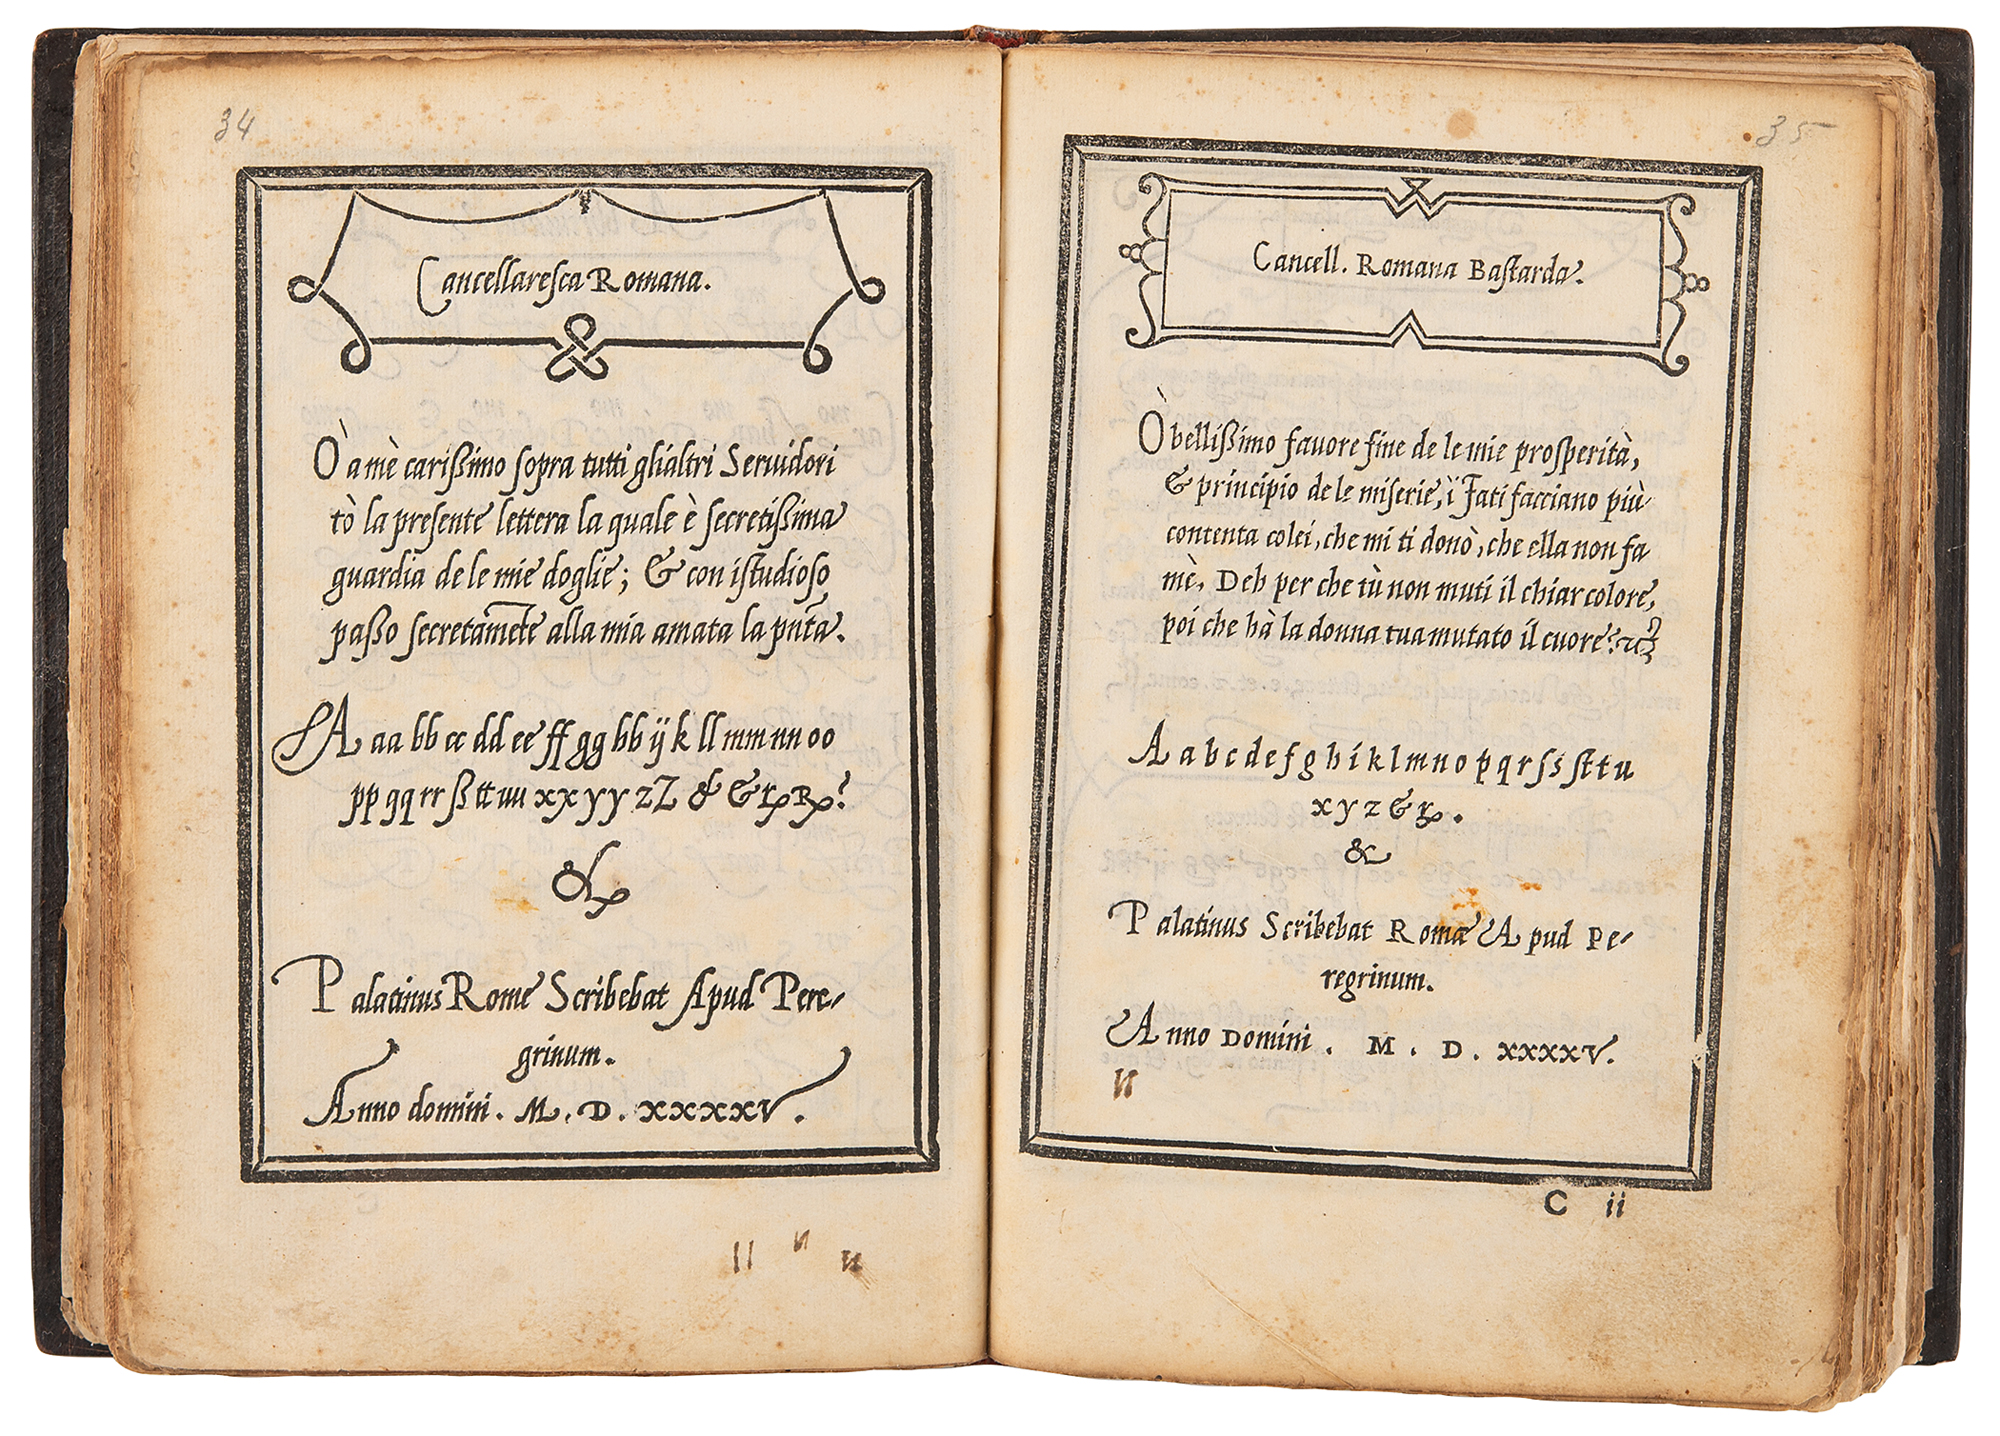 34
Cancellaresca Romana.
Ò a mè carißimo sopra tutti glialtri Seruidori
tò la presente lettera la quale è secretißima
guardia de le mie doglie; & con istudioso
paßo secretamēte alla mia amata la pñta.
A aa bb cc dd ee ff gg hh ij k ll mm nn oo
pp qq rr ß tt uu xx yy zZ & & rx Rx?
&
Palatinus Rome Scribebat Apud Pere-
grinum.
Anno domini. M. D. XXXXV.
35
Cancell. Romana Bastarda.
Ò bellißimo fauore fine de le mie prosperità,
& principio de le miserie, i Fati facciano più
contenta colei, che mi ti donò, che ella non fa
mè, Deh per che tù non muti il chiar colore,
poi che hà la donna tua mutato il cuore?
A a b c d e f g h i k l m n o p q r s s st t u
x y z & rx.
&
Palatinus Scribebat Romæ Apud Pe-
regrinum.
Anno Domini. M. D. XXXXV.
C ii